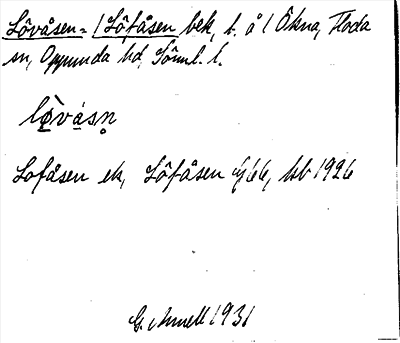 Lövåsen = / Löfåsen bek, t. å / Ökna, Floda
sn, Oppunda hd, Söml. l.
lø̀vásn̥
Lofåsen ek, Löfåsen 66, hsb 1926
G. Annell 1931